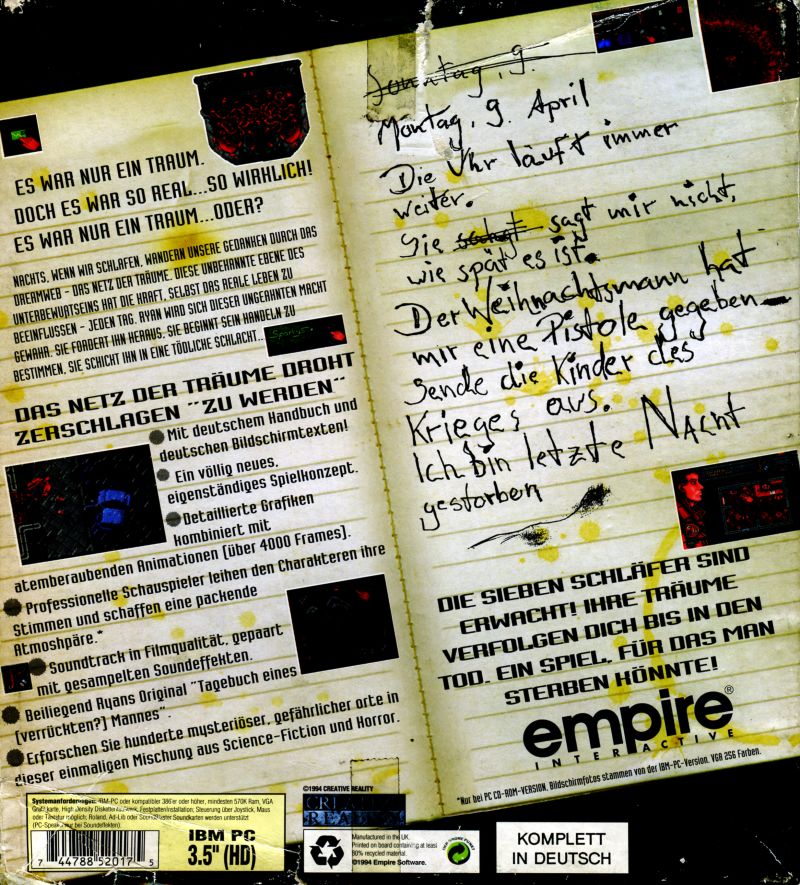 ES WAR NUR EIN TRAUM.
DOCH ES WAR SO REAL...SO WIRKLICH!
ES WAR NUR EIN TRAUM...ODER?
NACHTS, WENN WIR SCHLAFEN, WANDERN UNSERE GEDANKEN DURCH DAS
DREAMWEB - DAS NETZ DER TRÄUME. DIESE UNBEKANNTE EBENE DES
UNTERBEWUßTSEINS HAT DIE KRAFT, SELBST DAS REALE LEBEN ZU
BEEINFLUSSEN - JEDEN TAG. RYAN WIRD SICH DIESER UNGEAHNTEN MACHT
GEWAHR. SIE FORDERT IHN HERAUS, SIE BEGINNT SEIN HANDELN ZU
BESTIMMEN, SIE SCHICHT IHN IN EINE TÖDLICHE SCHLACHT...
DAS NETZ DER TRÄUME DROHT
ZERSCHLAGEN "ZU WERDEN"
Mit deutschem Handbuch und
deutschen Bildschirmtexten!
Ein völlig neues,
eigenständiges Spielkonzept.
Detaillierte Grafiken
kombiniert mit
atemberaubenden Animationen (über 4000 Frames).
Professionelle Schauspieler leihen den Charakteren ihre
Stimmen und schaffen eine packende
Atmoshpäre.*
Soundtrack in Filmqualität, gepaart
mit gesampelten Soundeffekten.
Beiliegend Ryans Original "Tagebuch eines
(verrückten?) Mannes".
Erforschen Sie hunderte mysteriöser, gefährlicher orte in
dieser einmaligen Mischung aus Science-Fiction und Horror.
Sonntag, 9.
Montag, 9. April
Die Uhr läuft immer
weiter.
Sie sagt mir nicht,
wie spät es ist.
Der Weihnachtsmann hat
mir eine Pistole gegeben—
Sende die Kinder des
Krieges aus.
Ich bin letzte Nacht
gestorben
DIE SIEBEN SCHLÄFER SIND
ERWACHT! IHRE TRÄUME
VERFOLGEN DICH BIS IN DEN
TOD. EIN SPIEL, FÜR DAS MAN
STERBEN HÖNNTE!
empire®
INTERACTIVE
*Nur bei PC CD-ROM-VERSION. Bildschirmfotos stammen von der IBM-PC-Version. VGA 256 Farben.
Systemanforderungen: IBM-PC oder kompatibler 386'er oder höher, mindesten 570K Ram, VGA
Grafikkarte, High Density Diskettenlaufwerk, Festplatteninstallation; Steuerung über Joystick, Maus
oder Tastatur möglich; Roland, Ad-Lib oder Soundblaster Soundkarten werden unterstützt
(PC-Speaker nur bei Soundeffekten).
7 44788 52017 5
IBM PC
3.5" (HD)
©1994 CREATIVE REALITY
Manufactured in the UK.
Printed on board containing at least
80% recycled material.
©1994 Empire Software.
KOMPLETT
IN DEUTSCH